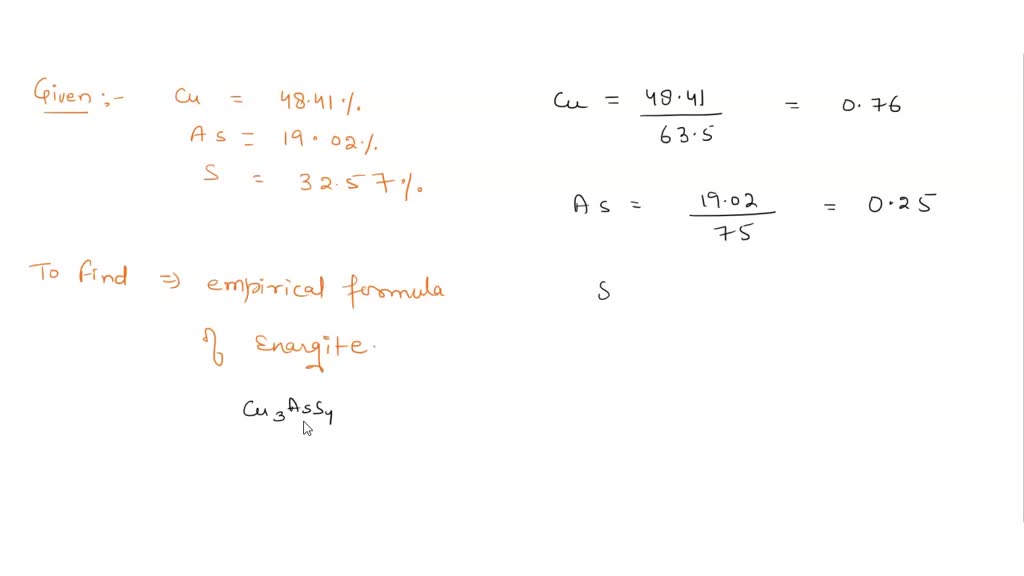 Given :- Cu = 48.41 %.
As = 19.02 %.
S = 32.57 %.
To find => empirical formula
of Enargite.
Cu3AsS4
Cu = 48.41 / 63.5 = 0.76
As = 19.02 / 75 = 0.25
S